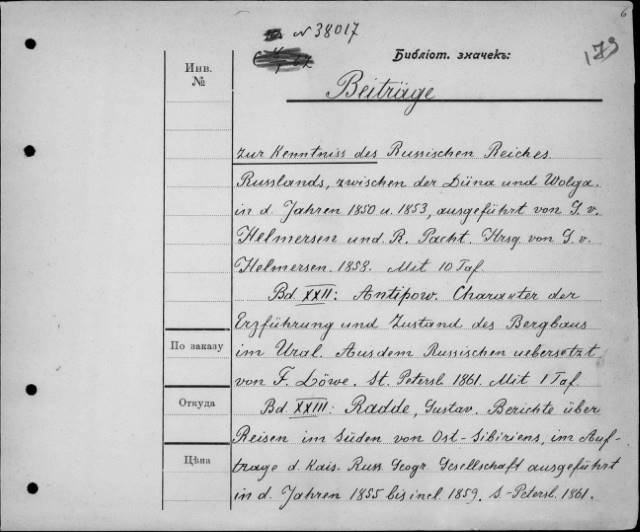 6
N 38017
173
Библіот. значекъ:
Инв.
№
Beiträge
zur Kenntniss des Russischen Reiches.
Russlands, zwischen der Düna und Wolga.
in d. Jahren 1850 u. 1853, ausgeführt von G. v.
Helmersen und R. Pacht. Hrsg. von G. v.
Helmersen. 1858. Mit 10 Taf.
Bd. XXII: Antipow. Charakter der
Erzführung und Zustand des Bergbaus
По заказу
im Ural. Aus dem Russischen uebersetzt
von F. Löwe. St. Petersb. 1861. Mit 1 Taf.
Откуда
Bd. XXIII: Radde, Gustav. Berichte über
Reisen im Süden von Ost-Sibiriens, im Auf-
Цѣна
trage d. Kais. Russ. Geogr. Gesellschaft ausgeführt
in d. Jahren 1855 bis incl. 1859. S-Petersb. 1861.